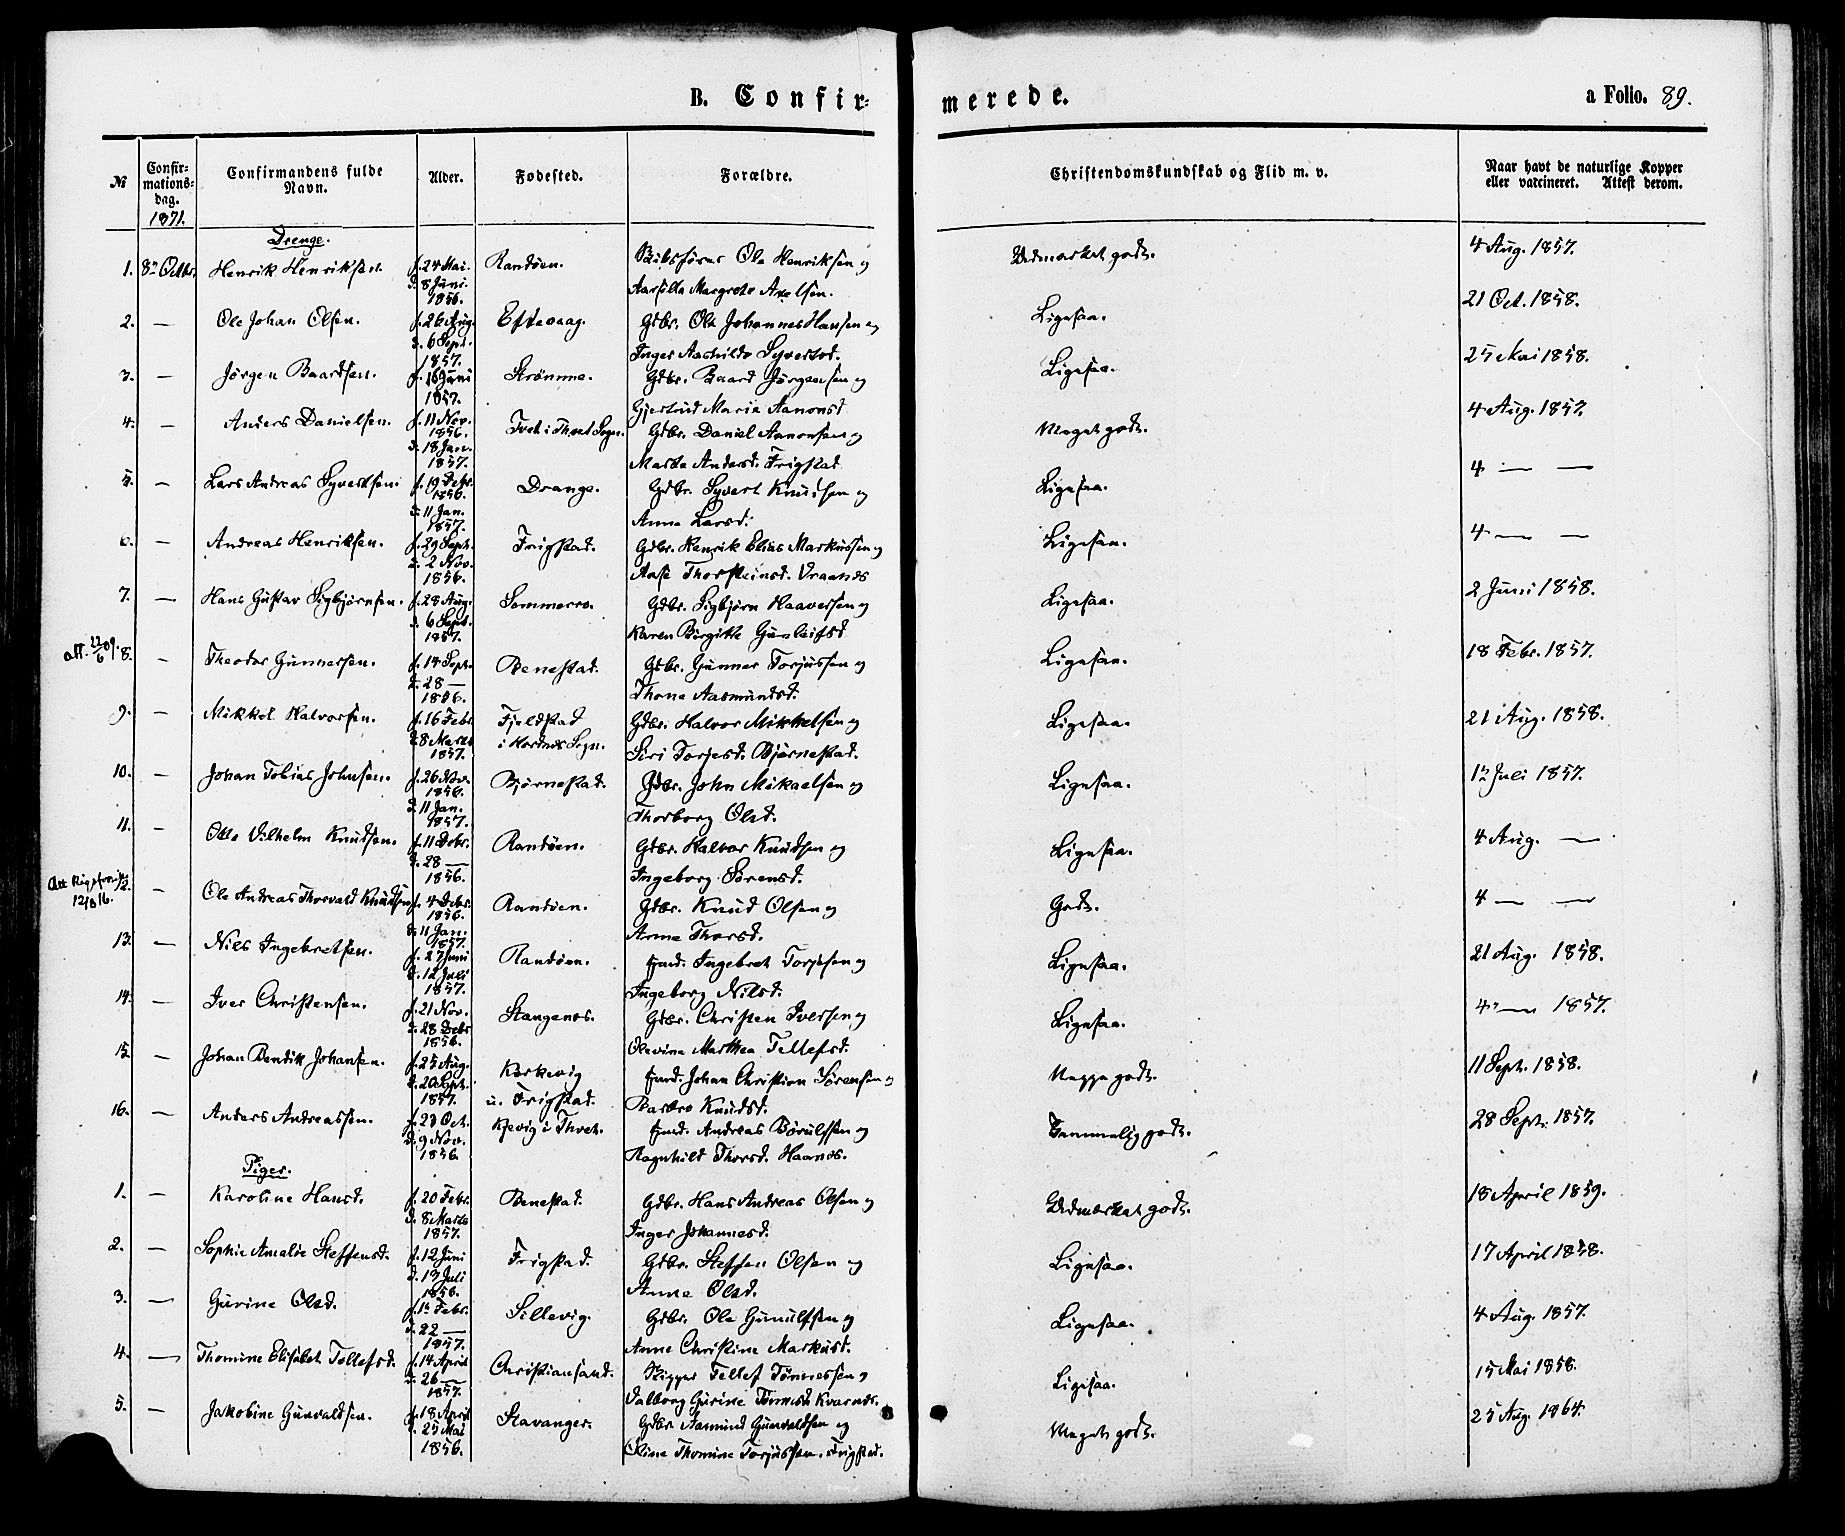 B. Confir-merede. a Folio. 89.
№ Confir-mations-dag. 1871. Confirmandens fulde Navn. Alder. Fødested. Forældre. Christendomskundskab og Flid m. v. Naar havt de naturlige Kopper eller vaccineret. Attest derom.
Drenge.
1. 8de Octbr. Henrik Henriksen. f. 24 Mai. d. 8 Juni. 1856. Randøen. Ole Henriksen og Margrete Axelsen. Udmærket godt. 4 Aug. 1857.
2. — Ole Johan Olsen. f. 26 Aug. d. 6 Sept. 1857. Eftevaag. Gdbr. Ole Johannes Hansen og Inger Aashilda Syvertsd. Ligesaa. 21 Oct. 1858.
3. — Jørgen Baardsen. f. 16 Juni 1857. Strømme. Gdbr. Baard Jørgensen og Gjertrud Maria Aanonsd. Ligesaa. 25 Mai 1858.
4. — Anders Danielsen. f. 11 Nov. 1856. d. 18 Jan. 1857. Tveit i Thveit Sogn. Gdbr. Daniel Aanonsen og Marte Andersd. Frigstad. Meget godt. 4 Aug. 1857.
5. — Lars Andreas Syvertsen. f. 19 Debr. 1856. d. 11 Jan. 1857. Drange. Gdbr. Syvert Knudsen og Anne Larsd. Ligesaa. 4 — —
6. — Andreas Henriksen. f. 29 Sept. d. 2 Nov. 1856. Frigstad. Gdbr. Henrik Elias Markussen og Aase Thorsteinsd. Vraanes Ligesaa. 4 — —
7. — Hans Gustav Sigbjørnsen. f. 28 Aug. d. 6 Sept. 1857. Sommerro. Gdbr. Sigbjørn Haaversen og Karen Birgitte Gunleifsd. Ligesaa. 2 Juni 1858.
att. 22/6 09. 8. — Theodor Gunnersen. f. 14 Sept. d. 28 — 1856. Benestad. Gdbr. Gunner Torjussen og Thone Aasmundsd. Ligesaa. 18 Febr. 1857.
9. — Mikkel Halvorsen. f. 16 Febr. d. 8 Marts 1857. Fjeldstad i Hordnes Sogn. Gdbr. Halvor Mikkelsen og Siri Torjesd. Bjørnestad. Ligesaa. 21 Aug. 1858.
10. — Johan Tobias Johnsen. f. 26 Nov. 1856. d. 11 Jan. 1857. Bjørnestad. Gdbr. John Mikaelsen og Thorborg Olsd. Ligesaa. 12 Juli 1857.
11. — Otto Vilhelm Knudsen. f. 11 Debr. d. 28 — 1856. Randøen. Gdbr. Halvor Knudsen og Ingeborg Sørensd. Ligesaa. 4 Aug. —
12/8 16. 12. — Ole Andreas Thorvald Knudsen. f. 4 Debr. 1856. d. 11 Jan. 1857. Randøen. Gdbr. Knud Olsen og Anne Thorsd. Godt. 4 — —
13. — Nils Ingebretsen. f. 27 Juni d. 12 Juli 1857. Randøen. Ingebret Torjesen og Ingeborg Nilsd. Ligesaa. 21 Aug. 1858.
14. — Iver Christensen. f. 21 Nov. d. 28 Debr. 1856. Stangenes. Gdbr. Christen Iversen og Olevine Marthea Tellefsd. Ligesaa. 4 — 1857.
15. — Johan Bendik Johansen. f. 25 Aug. d. 20 Sept. 1857. Korkevig u. Frigstad. Johan Christian Sørensen og Barbro Knudsd. Noget godt. 11 Sept. 1858.
16. — Anders Andreassen. f. 23 Oct. d. 9 Nov. 1856. Kjevig i Thveit. Andreas Børulfsen og Ragnhild Thorsd. Haanes. Temmelig godt. 28 Sept. 1857.
Piger.
1. — Karoline Hansd. f. 20 Febr. d. 8 Marts 1857. Benestad. Gdbr. Hans Andreas Olsen og Inger Johannesd. Udmærket godt. 18 April 1859.
2. — Sophie Amalie Steffensd. f. 12 Juni d. 13 Juli 1856. Frigstad. Gdbr. Steffen Olsen og Anne Olsd. Ligesaa. 17 April 1858.
3. — Gurine Olsd. f. 1ste Febr. d. 22 — 1857. Sillevig. Gdbr. Ole Gunulfsen og Anne Christine Markusd. Ligesaa. 4 Aug. 1857.
4. — Thomine Elisabet Tellefsd. f. 14 April d. 26 — 1857. Christiansand. Rigger Tellef Tønnessen og Valborg Gurine Tønnesd. Kvarnes. Ligesaa. 15 Mai 1858.
5. — Jakobine Gunvaldsen. f. 18 April d. 25 Mai 1856. Stavanger. Gdbr. Aamund Gunvaldsen og Oline Thomine Torjussen. Frigstad. Meget godt. 25 Aug. 1864.